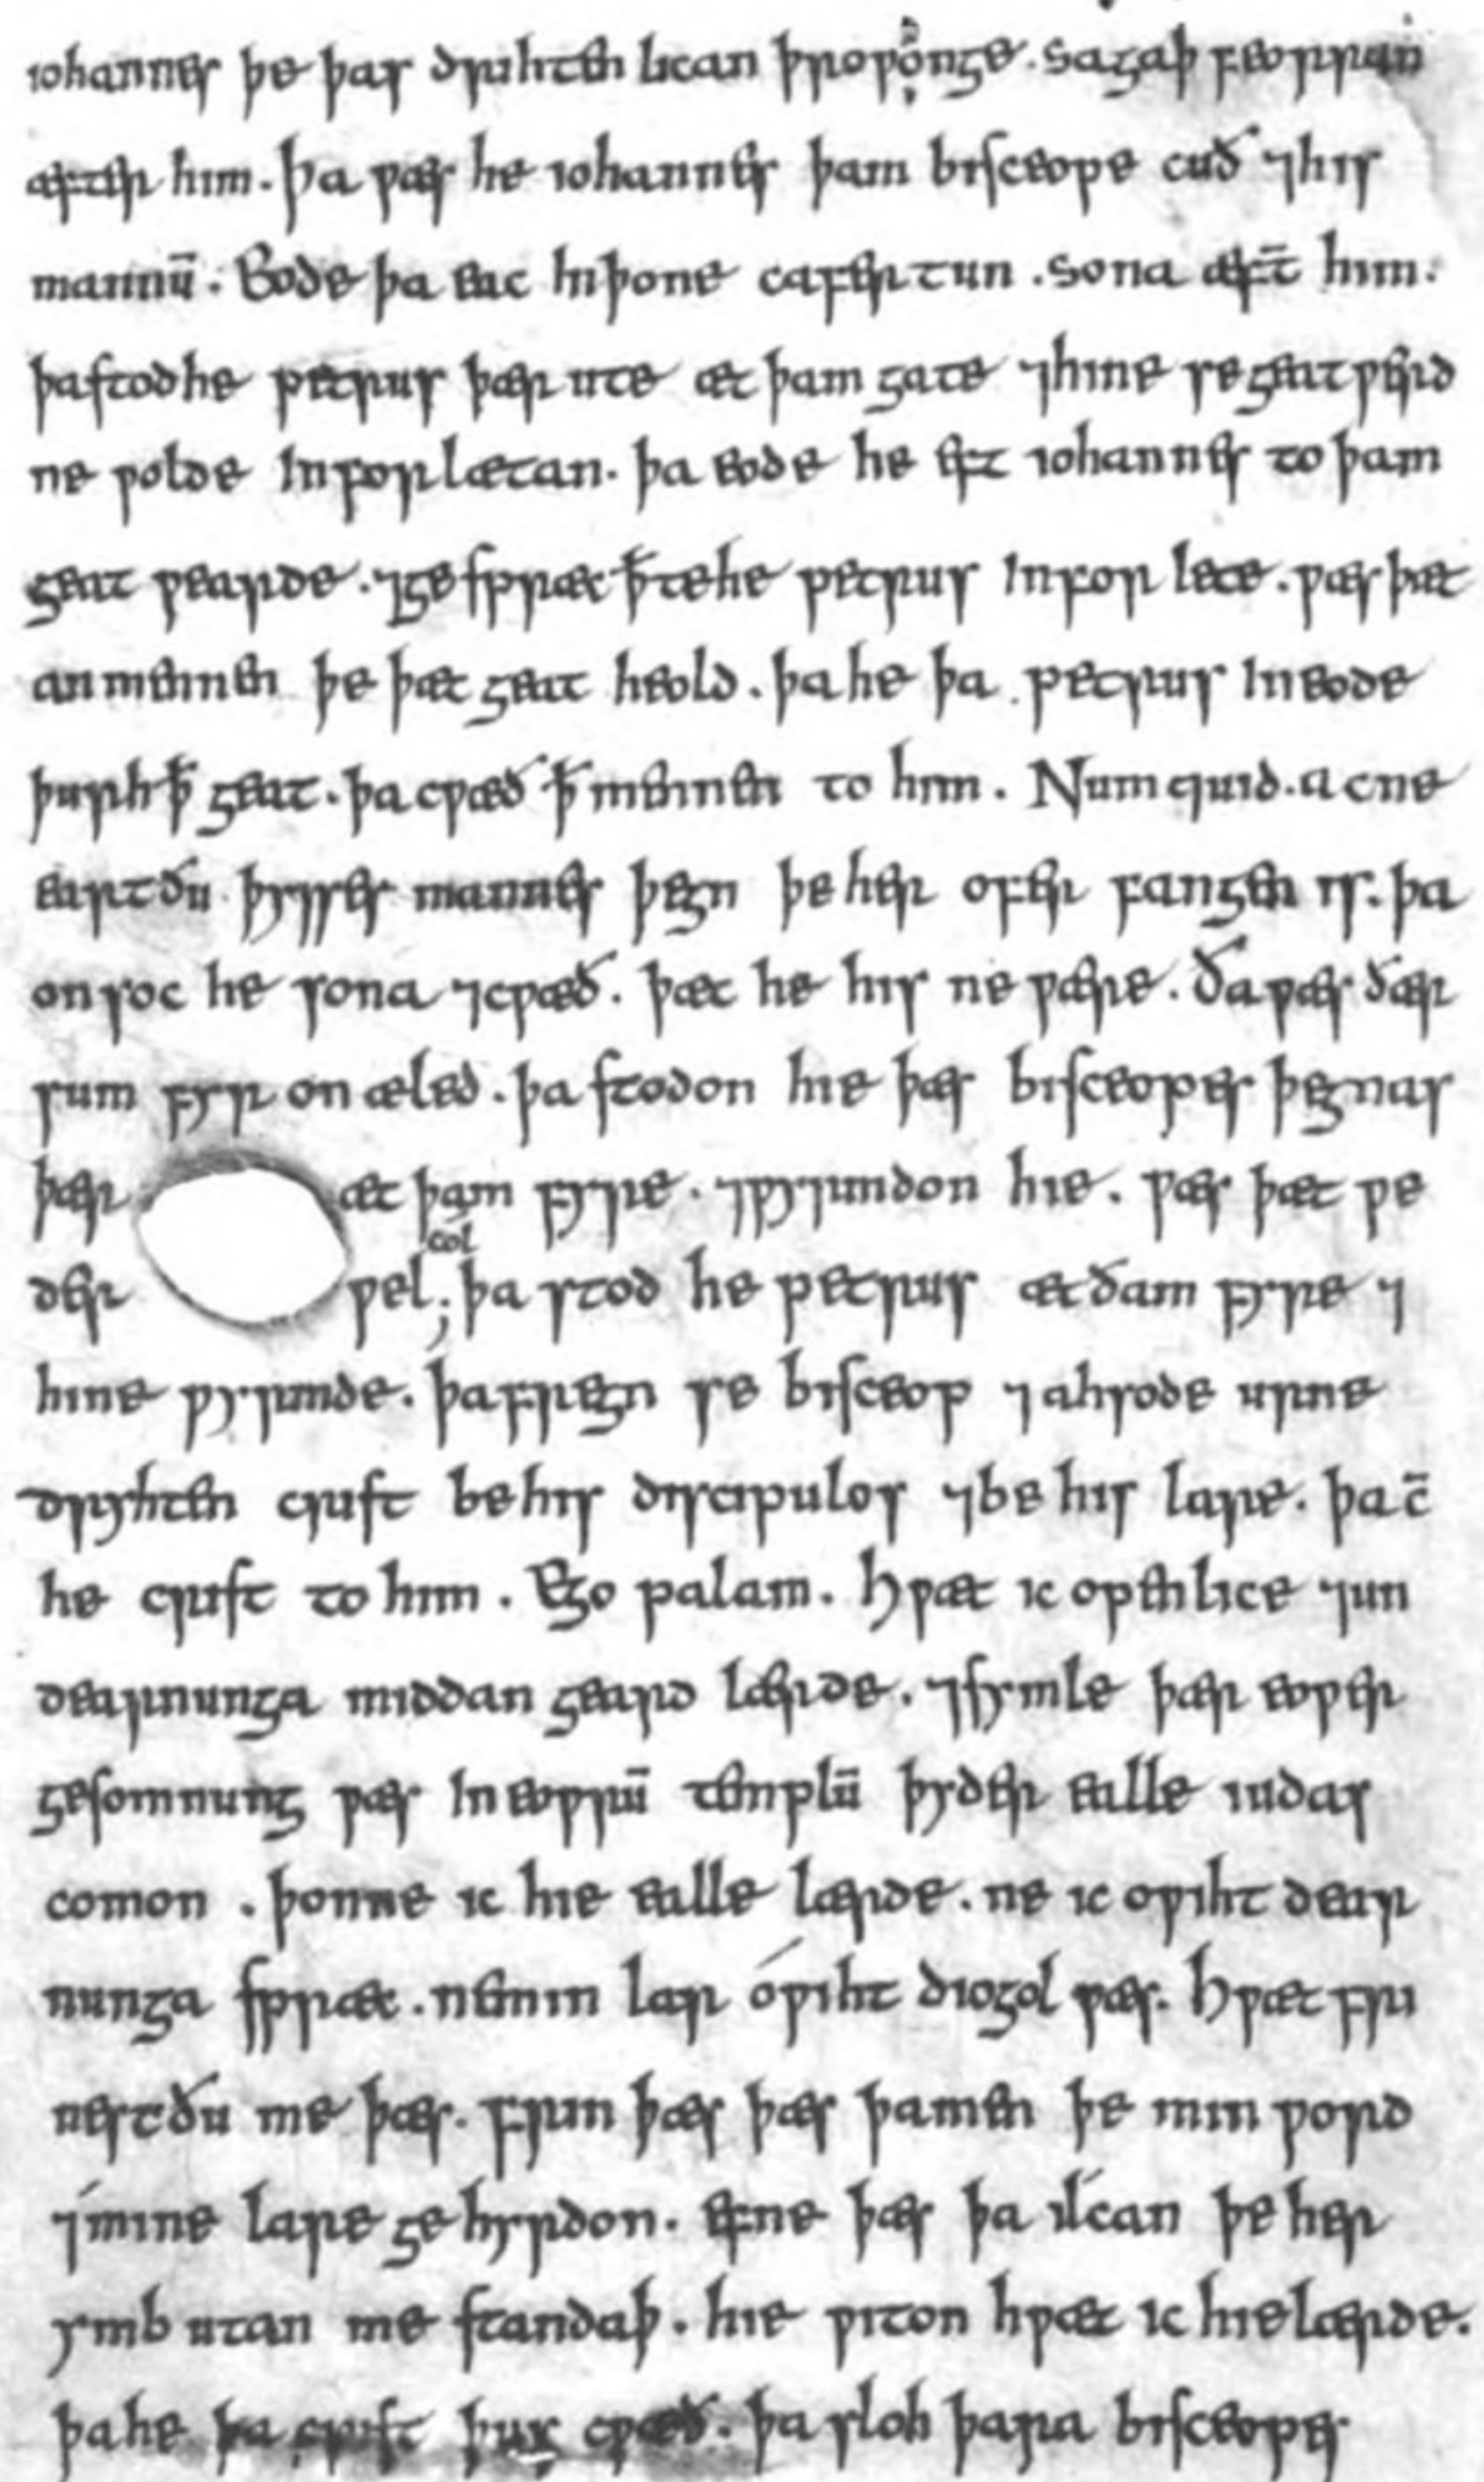 iohannes þe þas drihten lican þroƿonge . sagaþ feorran
æfter him . þa ƿæs he iohannes þam bisceope cuð ⁊ his
mannū . Eode þa eac in þone cafertun . sona æft̄ him .
þa stod he petrus þær ute æt þam gate ⁊ hine se geatƿerd
ne ƿolde in forlætan . þa eode he eft iohannes to þam
geat ƿearde . ⁊ ge spræc ꝥte he petrus in for lete . ƿæs þæt
an mennen þe þæt geat heold . þa he þa petrus in eode
þurh ꝥ geat . þa cƿæð ꝥ mennen to him . Numquid . ac ne
eart ðu þysses mannes þegn þe her ofer fangen is . þa
on soc he sona ⁊ cƿæð . þæt he his ne ƿære . ða ƿæs ðær
sum fyr on æled . þa stodon hie þæs bisceopes þegnas
þær æt þam fyre . ⁊ ƿyrmdon hie . ƿæs þæt ƿe
der ƿel col ; þa stod he petrus æt ðam fyre ⁊
hine ƿyrmde . þa frægn se bisceop ⁊ ahsode urne
dryhten crist be his discipulos ⁊ be his lare . þa c̄
he crist to him . Ego palam . Hƿæt ic openlice ⁊ un
dearnunga middan geard lærde . ⁊ symle þær eoƿer
gesomnung ƿæs in eoƿrū templū þyder ealle iudas
comon . þonne ic hie ealle lærde . ne ic oƿiht dear
nunga spræc . ne min lar óƿiht diogol ƿæs . Hƿæt fri
nest ðu me þæs . frin þæs þæs þa men þe min ƿord
⁊ mine lare ge hyrdon . efne þæs þa ilcan þe her
ymb utan me standaþ . hie ƿiton hƿæt ic hie lærde .
þa he þa crist þus cƿæð . þa sloh þara bisceopes